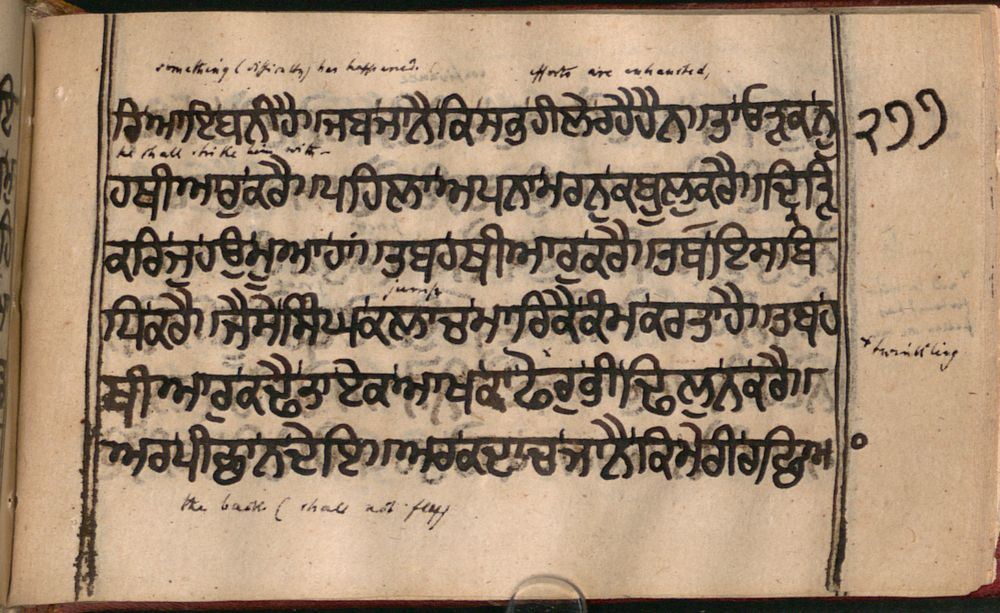 something (difficulty) has happened. efforts are exhausted,
ਰਿਆਇਬਨੀਹੈ॥ਜਬਜਾਨੈਕਿਮਤੁਹੀਲੇਰਹੈਹੈਨਾ॥ਤਾ ੨੭੭
he shall strike him with-
ਹਥੀਆਰੁਕਰੈ॥ਪਹਿਲਾਅਪਨਾਮਰਨੁਕਬੁਲੁਕਰੈ॥ਦ੍ਰਿੜੁ
ਕਰਿਜੁਹਉਮੂਆਹਾਂ॥ਤਬਹਥੀਆਰੁਕਰੈ॥ਤਬ
jump
ਕਰੈ॥ਜੈਸੇਸਿੰਘਕਲਾਚਮਾਰਿਕੈਕੰਮਕਰਤਾਹੈ॥ਤਬਹ
+ twinkling
ਥੀਆਰੁਕਦੈਤਾਏਕਆਖਕਾਫੋਰੁਭੀਢਿਲੁਨਕਰੈ॥
ਅਰਪੀਛਾਨਦੇਇ॥ਅਰਕਦਾਚਜਾਨੈਕਿਮੇਰੀਰਛਿਆ
the back (shall not flee)